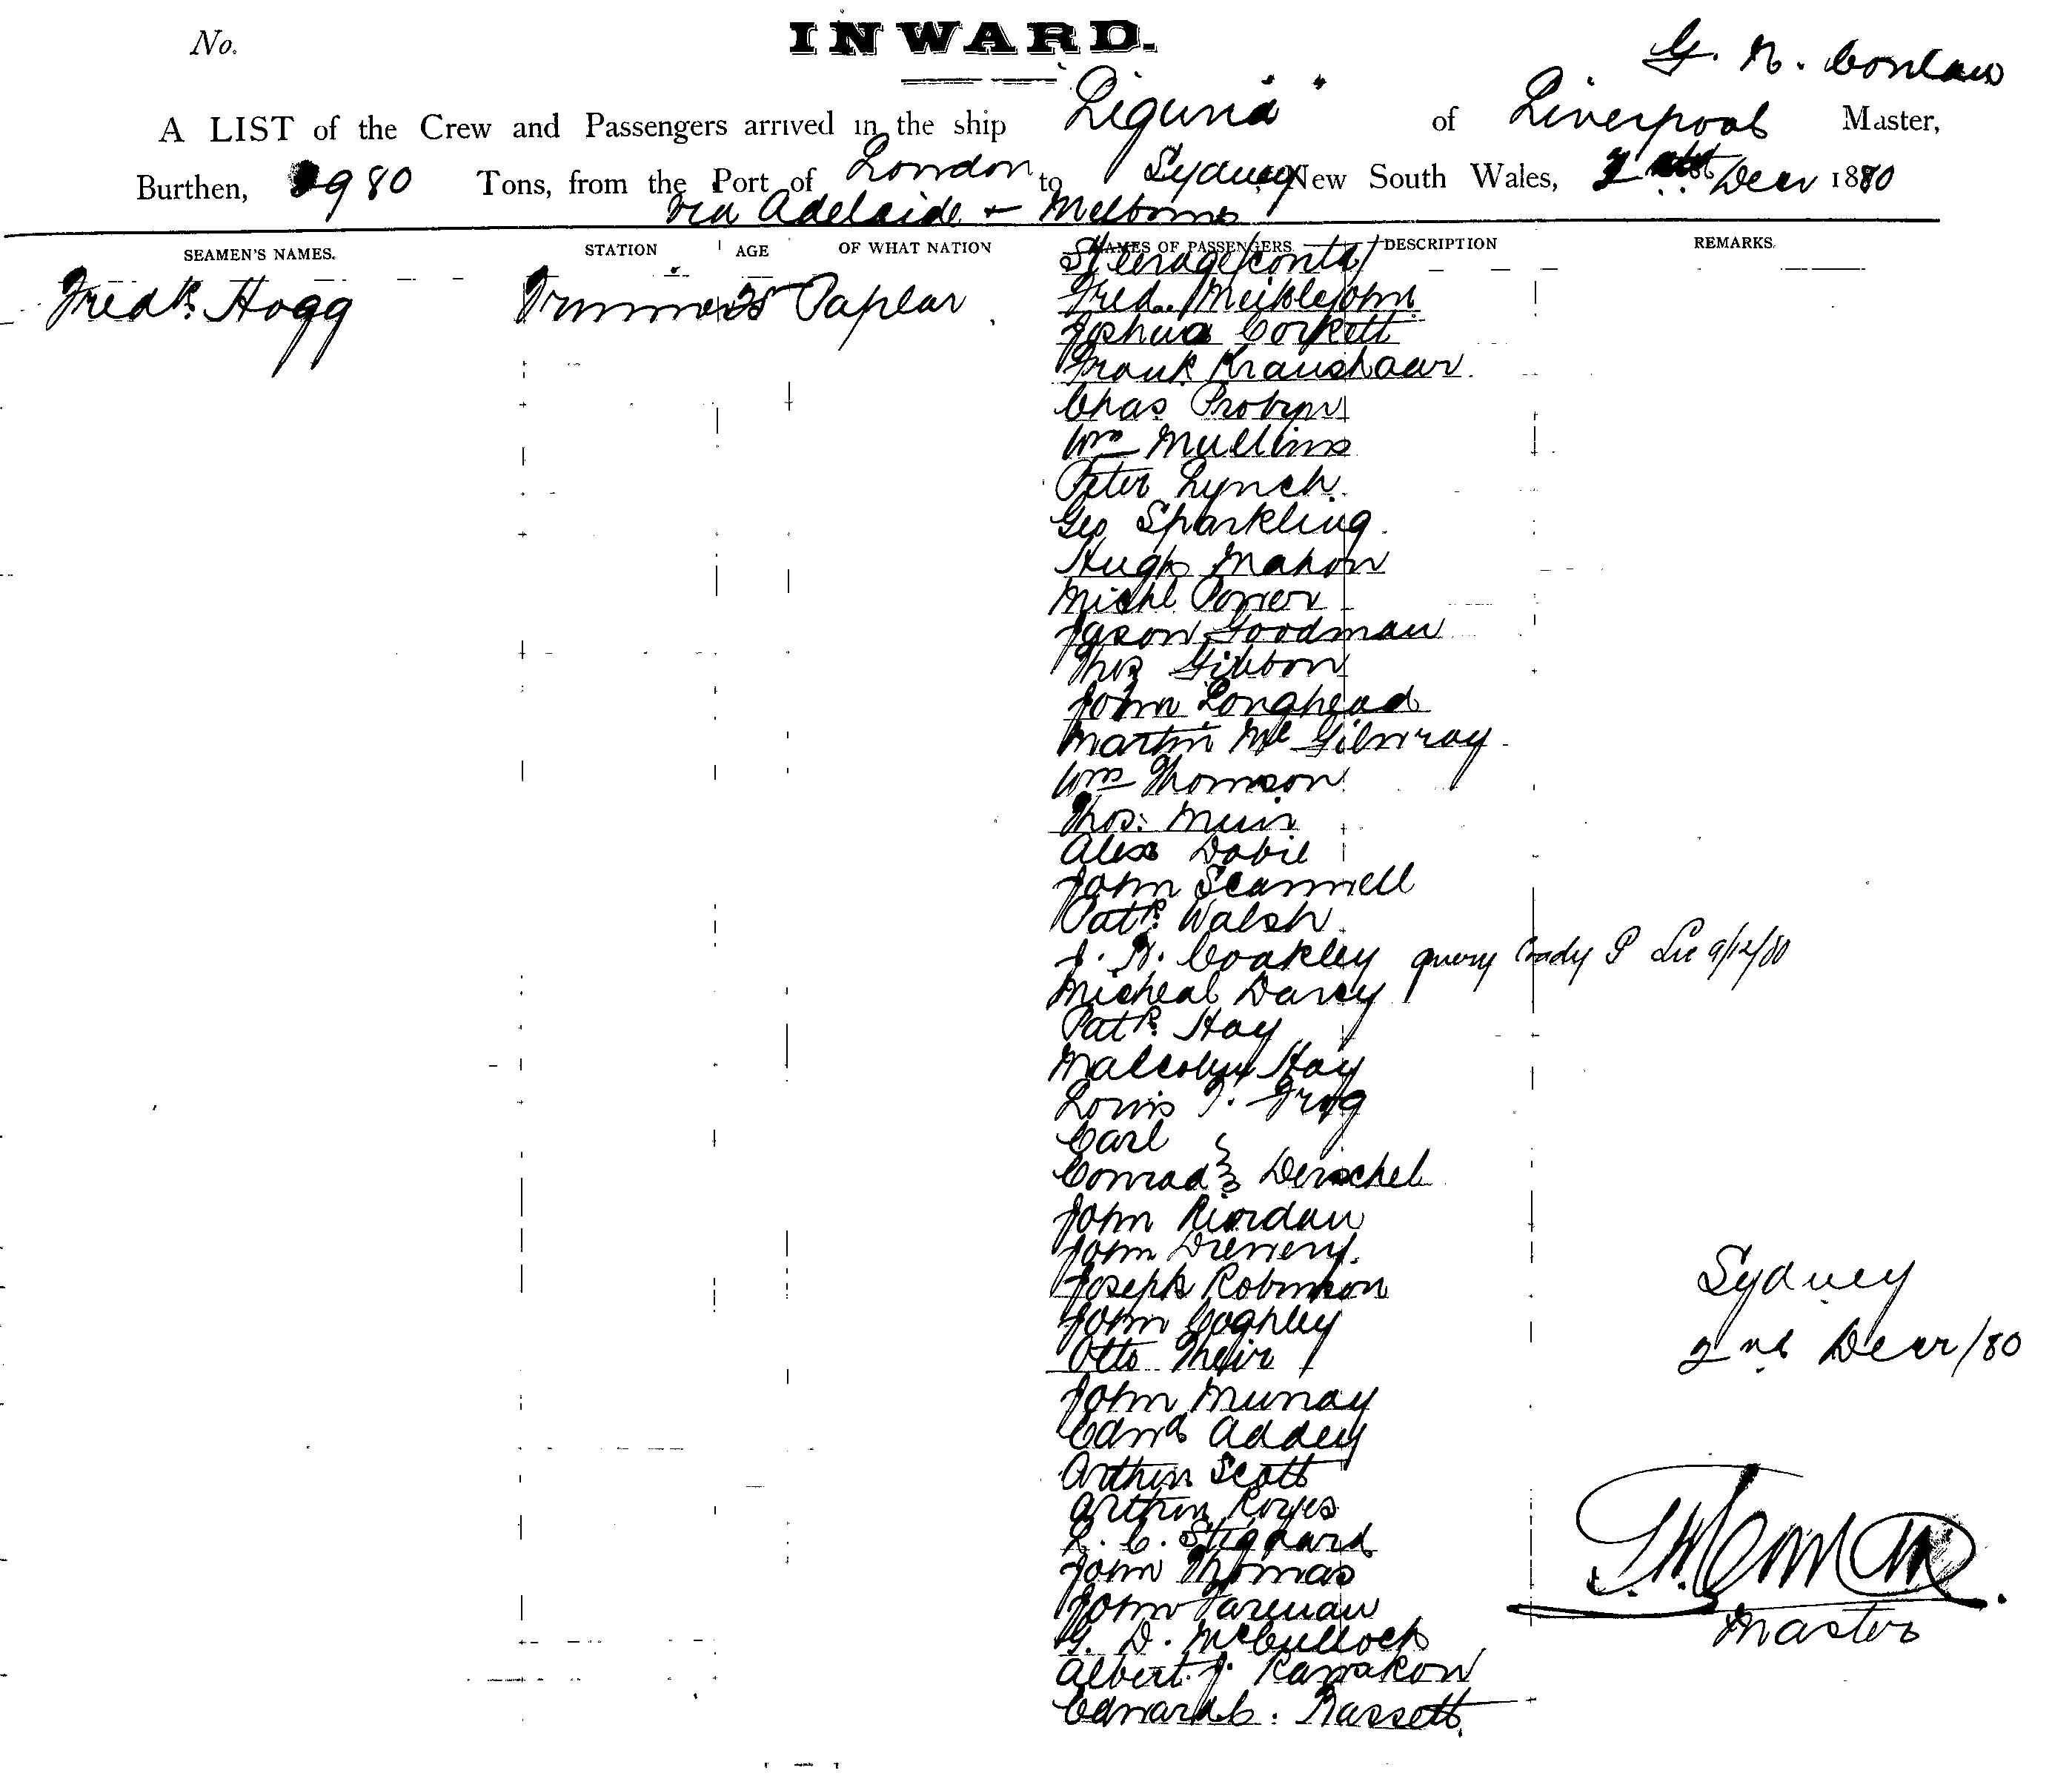 No.
INWARD.
G. N. Conlan
A LIST of the Crew and Passengers arrived in the ship "Liguria" of Liverpool Master,
Burthen, 2980 Tons, from the Port of London to Sydney, New South Wales, 2nd Decr 1880
via Adelaide & Melbourne
SEAMEN'S NAMES. STATION AGE OF WHAT NATION NAMES OF PASSENGERS DESCRIPTION REMARKS.
Steerage contd
Fredk. Hogg Trimmer 25 Paplar
Fred. Meiklejohn
Joshua Corkett
Frank Kraushaar
Chas Probyn
Wm Mullins
Peter Lynch
Geo Sparkling
Hugh Mahon
Michl Power
Jason Goodman
Thos Gibbon
John Longhead
Martin Mc Gilvray
Wm Thomson
Thos. Muir
Alex Dobie
John Scannell
Patk. Walsh
J. H. Coakley query Coady P Lie 9/12/80
Micheal Darcy
Patk. Hay
Malcolm Hay
Louis T. Grog
Carl
Conrad } Derschel
John Riordan
John Drewery.
Joseph Robinson
John Coghley
Otto Meir
John Murray
Edwd Addey
Arthur Scott
Arthur Royes
L. C. Stiddard
John Thomas
John Farenan
G. D. McCullock
Albert J.
Edward C. Bassett.
Sydney
2nd Decr/80
Master